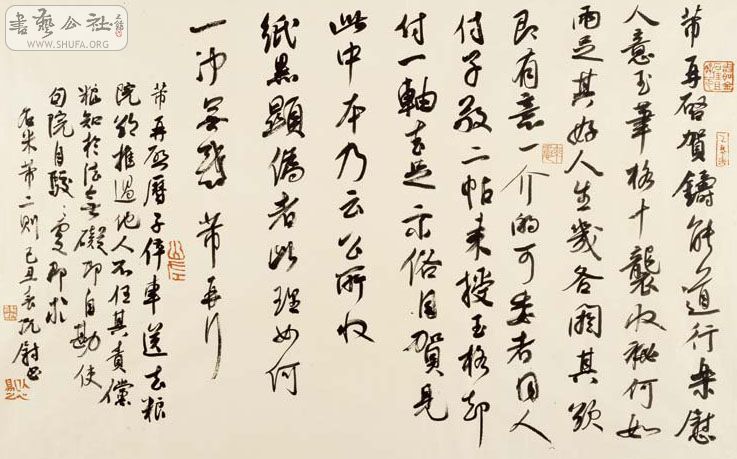 書藝公社
WWW.SHUFA.ORG
芾再啓賀鑄能道行樂慰
人意玉筆格十襲收祕何如
兩足其好人生幾各閱其欲
即有意一介的可委者同人
付子敬二帖來授玉格却
付一軸去足示俗目賀見
此中本乃云公所收
紙黑顯偽者此理如何
一決無惑芾再行
芾再啓曆子倅車送去粮
院欲推過他人不任其責儻
粮知於法無礙即自勘使
司院自駮駮處即求
右米芾二則己丑